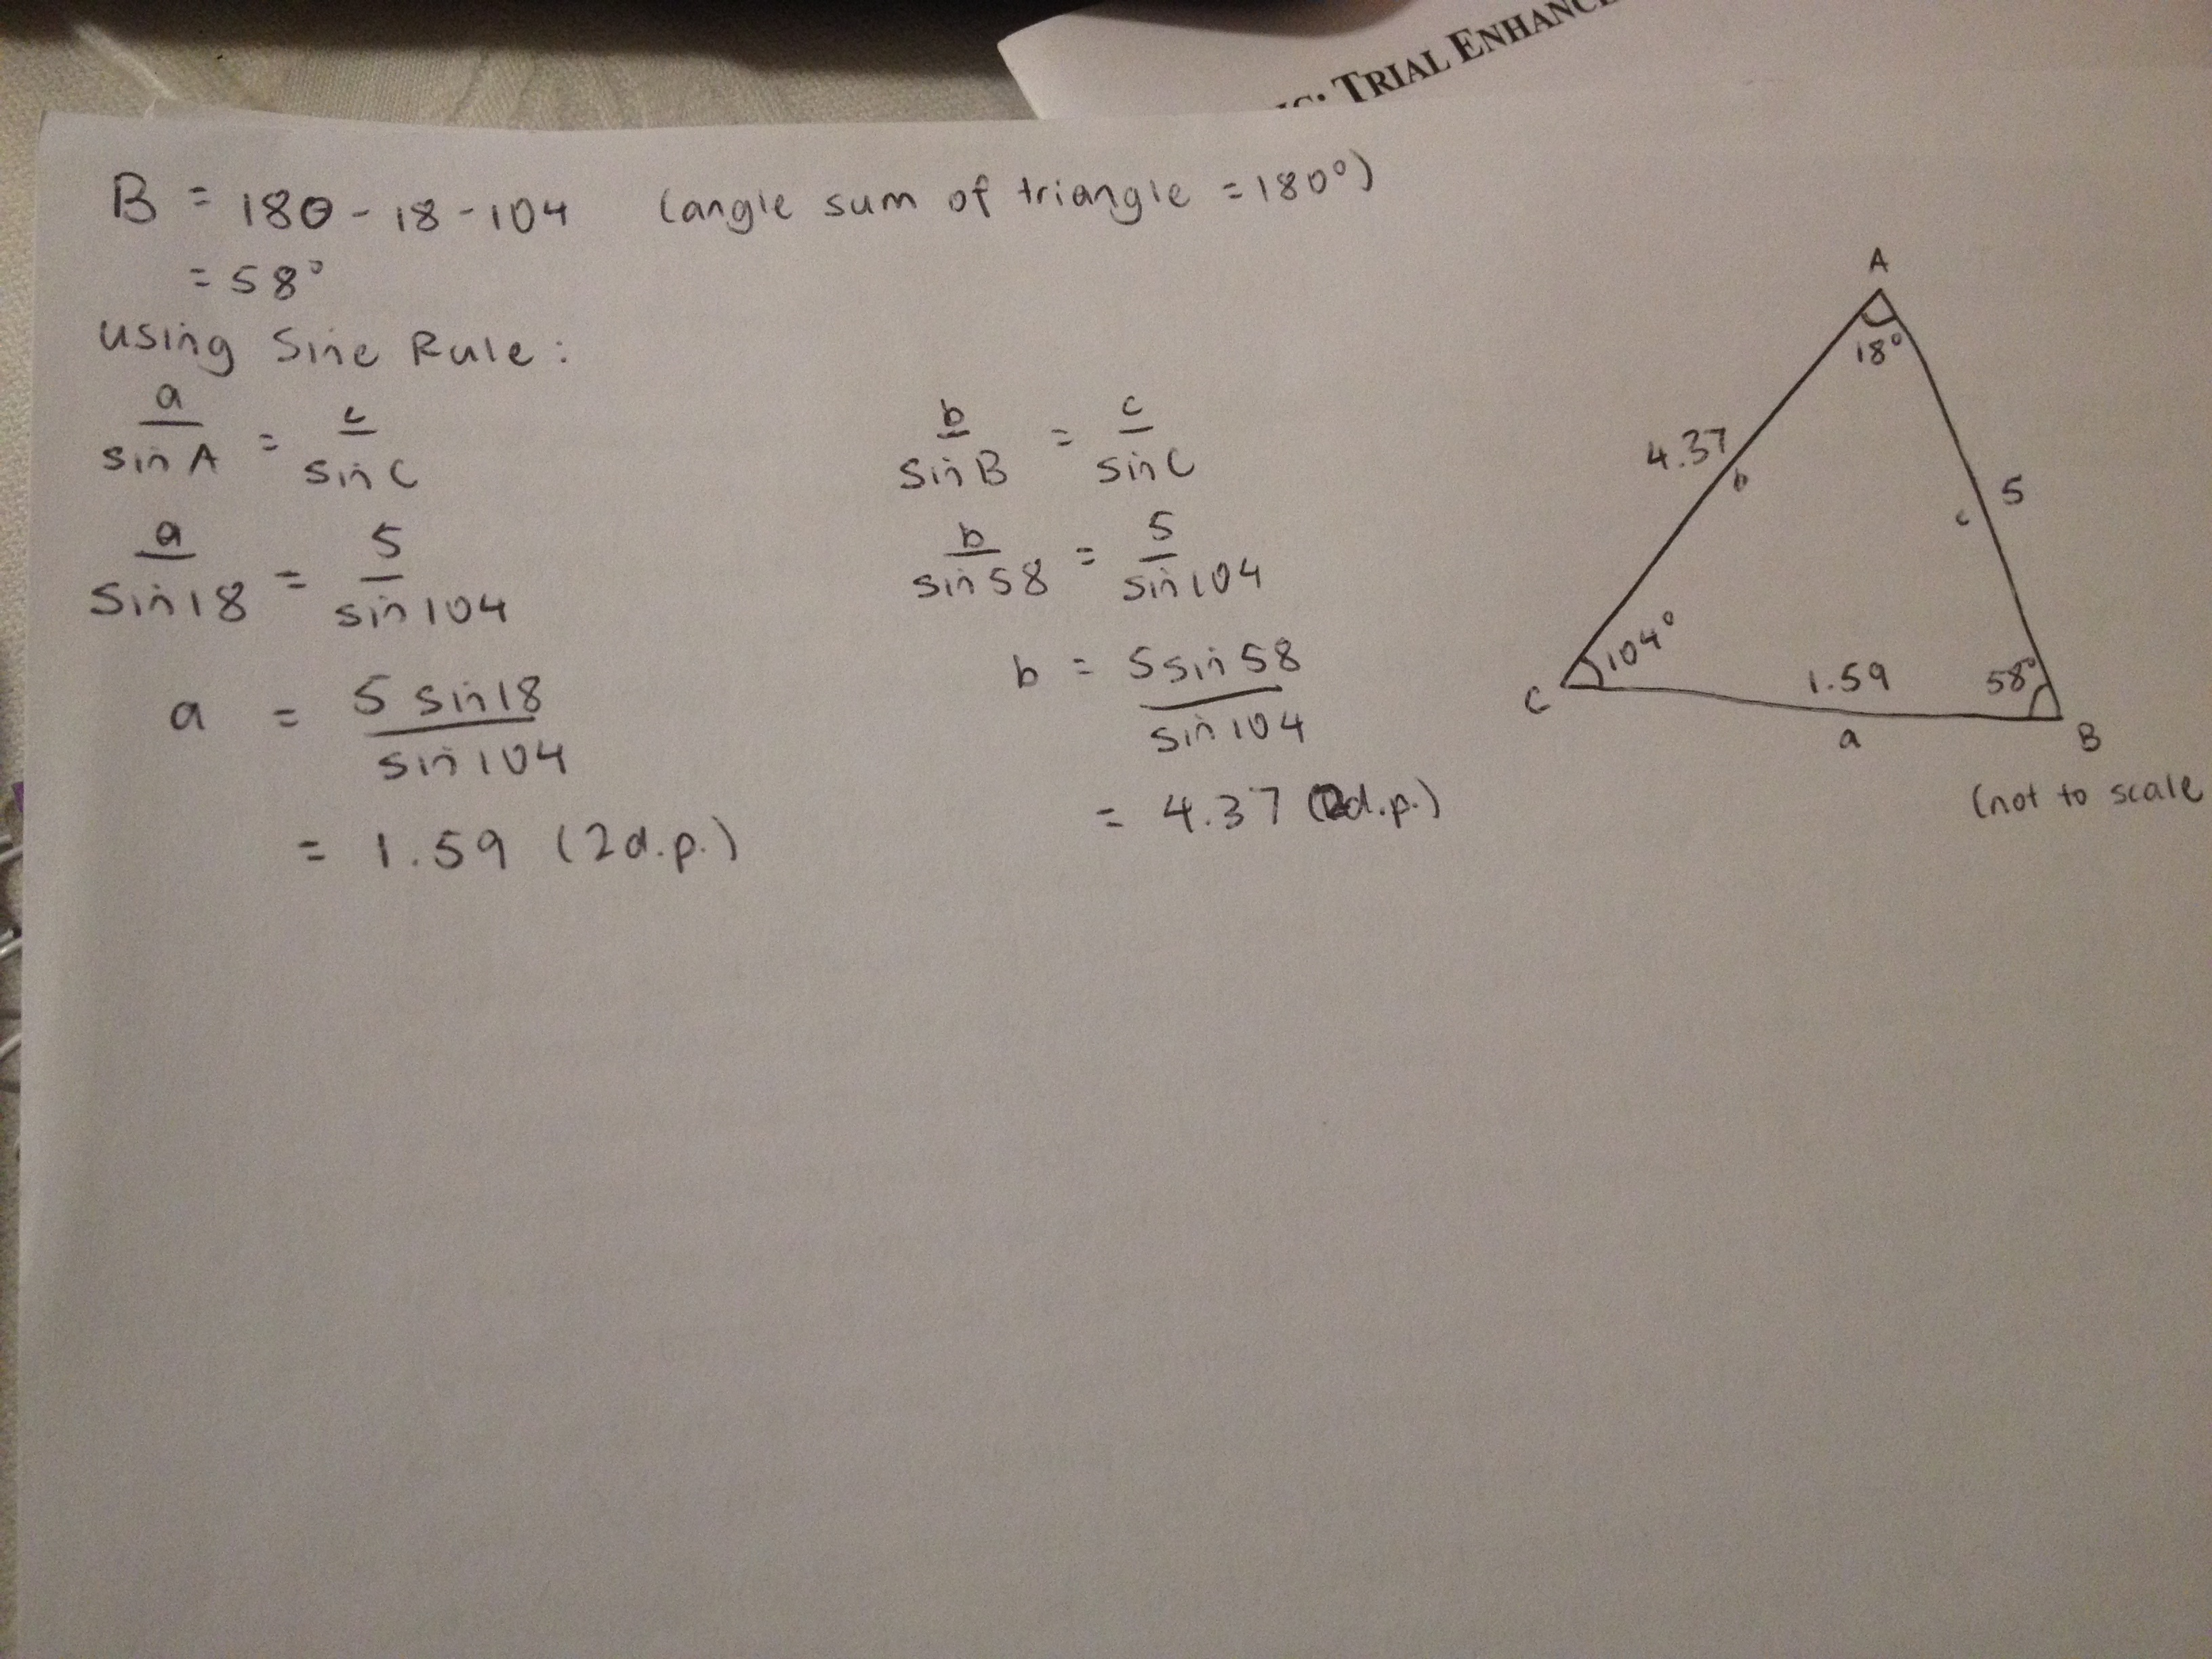 TRIAL ENHANCE
B = 180 - 18 - 104 (angle sum of triangle = 180°)
= 58°
using Sine Rule:
a/sin A = c/sin C
a/sin 18 = 5/sin 104
a = 5 sin 18/sin 104
= 1.59 (2d.p.)
b/sin B = c/sin C
b/sin 58 = 5/sin 104
b = 5 sin 58/sin 104
= 4.37 (2d.p.)
A
18°
4.37
b
5
c
104°
1.59
58°
C
a
B
(not to scale